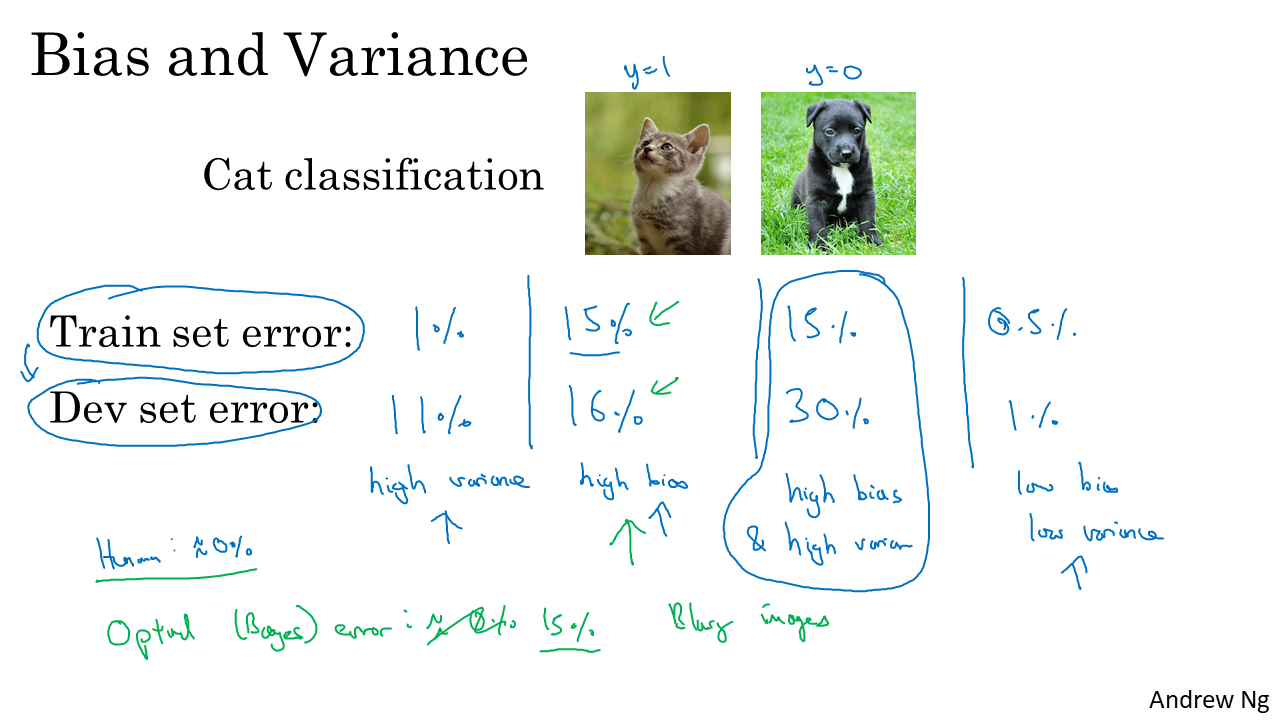 Bias and Variance
y=1 y=0
Cat classification
Train set error: 1% 15% 15% 0.5%
Dev set error: 11% 16% 30% 1%
high variance high bias high bias low bias
& high varian low variance
Human: ≈0%
Optimal (Bayes) error: ≈ 0% 15% Blurry images
Andrew Ng